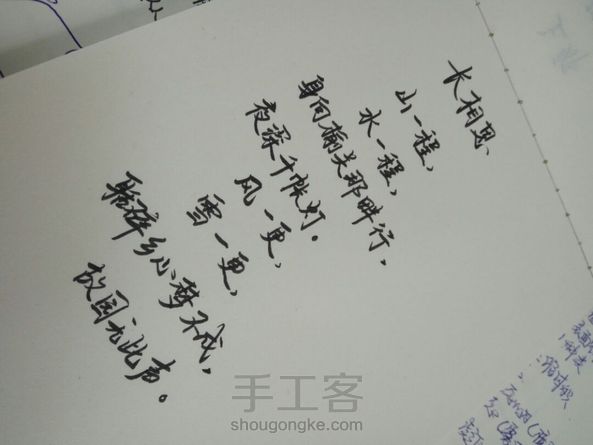 长相思、
山一程,
水一程,
身向榆关那畔行,
夜深千帐灯。
风一更,
雪一更,
聒碎乡心梦不成,
故园无此声。
手工客
shougongke.com